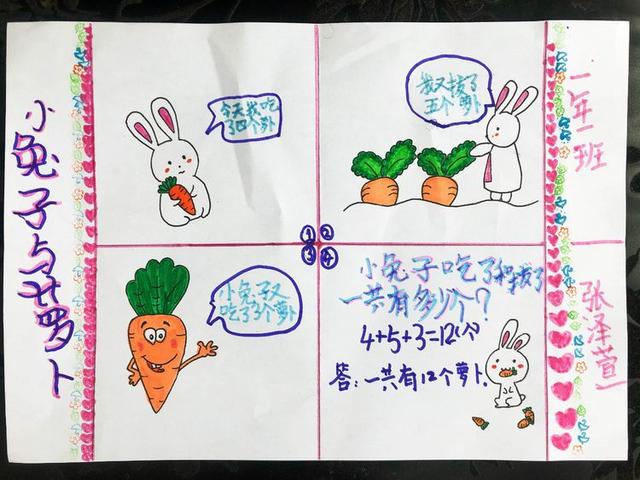 小兔子与萝卜
今天我吃
了四个萝卜
我又拔了
五个萝卜
①②
③④
小兔子又
吃了3个萝卜
小兔子吃了和拔了
一共有多少个？
4+5+3=12(个)
答：一共有12个萝卜.
一年一班
张泽萱